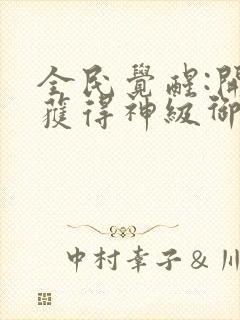 全民覺醒:開
獲得神級御
中村幸子&川